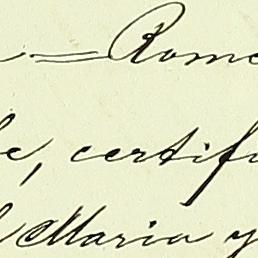 = Rome
e, certif
Maria y